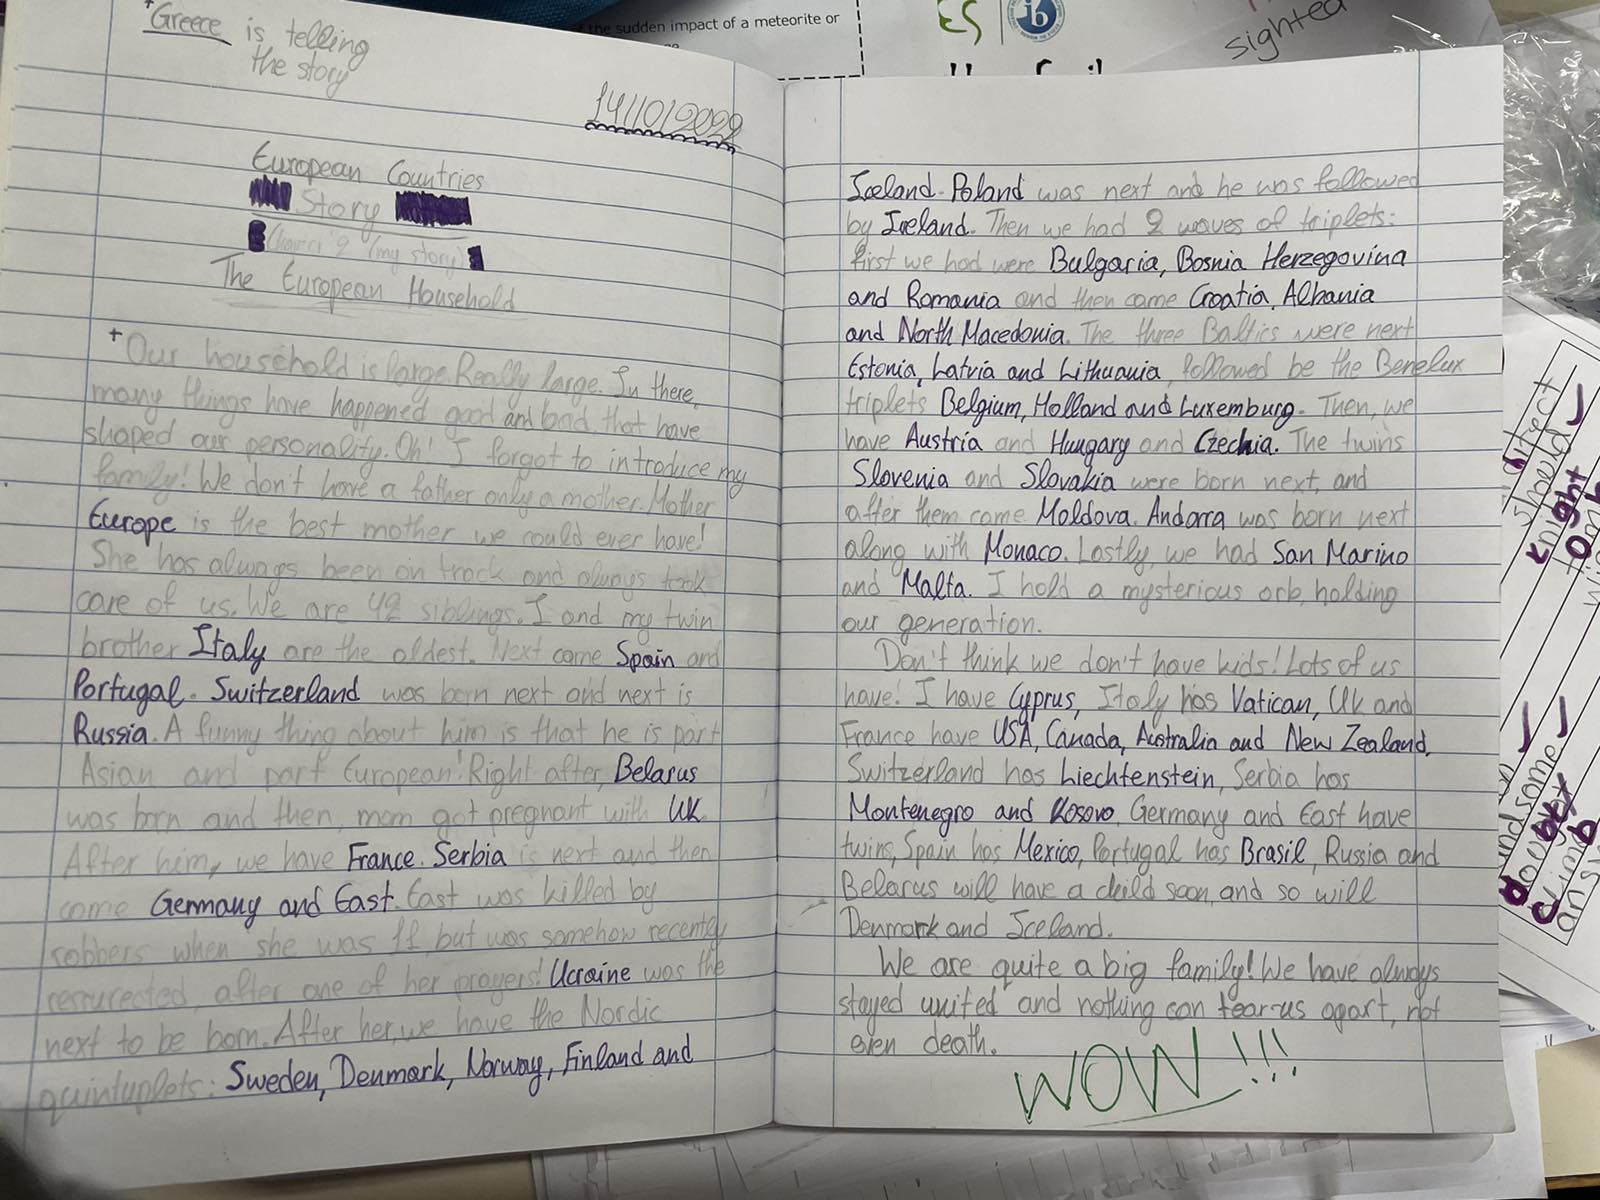 +Greece is telling
the story
14/10/2022
European Countries
Story
(my story)
The European Household
+Our household is large. Really large. In there,
many things have happened good and bad, that have
shaped our personality. Oh! I forgot to introduce my
family! We don't have a father only a mother. Mother
Europe is the best mother we could ever have!
She has always been on track and always took
care of us. We are 42 siblings. I and my twin
brother Italy are the oldest. Next come Spain and
Portugal. Switzerland was born next and next is
Russia. A funny thing about him is that he is part
Asian and part European! Right after, Belarus
was born and then, mom got pregnant with UK.
After him, we have France. Serbia is next and then
come Germany and East. East was killed by
robbers when she was 11, but was somehow recently
resurected, after one of her prayers! Ucraine was the
next to be born. After her, we have the Nordic
quintuplets: Sweden, Denmark, Norway, Finland and
Iceland. Poland was next and he was followed
by Ireland. Then we had 2 waves of triplets:
first we had were Bulgaria, Bosnia Herzegovina
and Romania and then came Croatia, Albania
and North Macedonia. The three Baltics were next
Estonia, Latvia and Lithuania, followed be the Benelux
triplets Belgium, Holland and Luxemburg. Then, we
have Austria and Hungary and Czechia. The twins
Slovenia and Slovakia were born next, and
after them come Moldova. Andorra was born next
along with Monaco. Lastly, we had San Marino
and Malta. I hold a mysterious orb, holding
our generation.
Don't think we don't have kids! Lots of us
have! I have Cyprus, Italy has Vatican, UK and
France have USA, Canada, Australia and New Zealand,
Switzerland has Liechtenstein, Serbia has
Montenegro and Kosovo, Germany and East have
twins, Spain has Mexico, Portugal has Brasil, Russia and
Belarus will have a child soon, and so will
Denmark and Iceland.
We are quite a big family! We have always
stayed united and nothing can tear us apart, not
even death.
WOW!!!
the sudden impact of a meteorite or
ES
ib
sighted
should
knight
handsome
doubt
climb